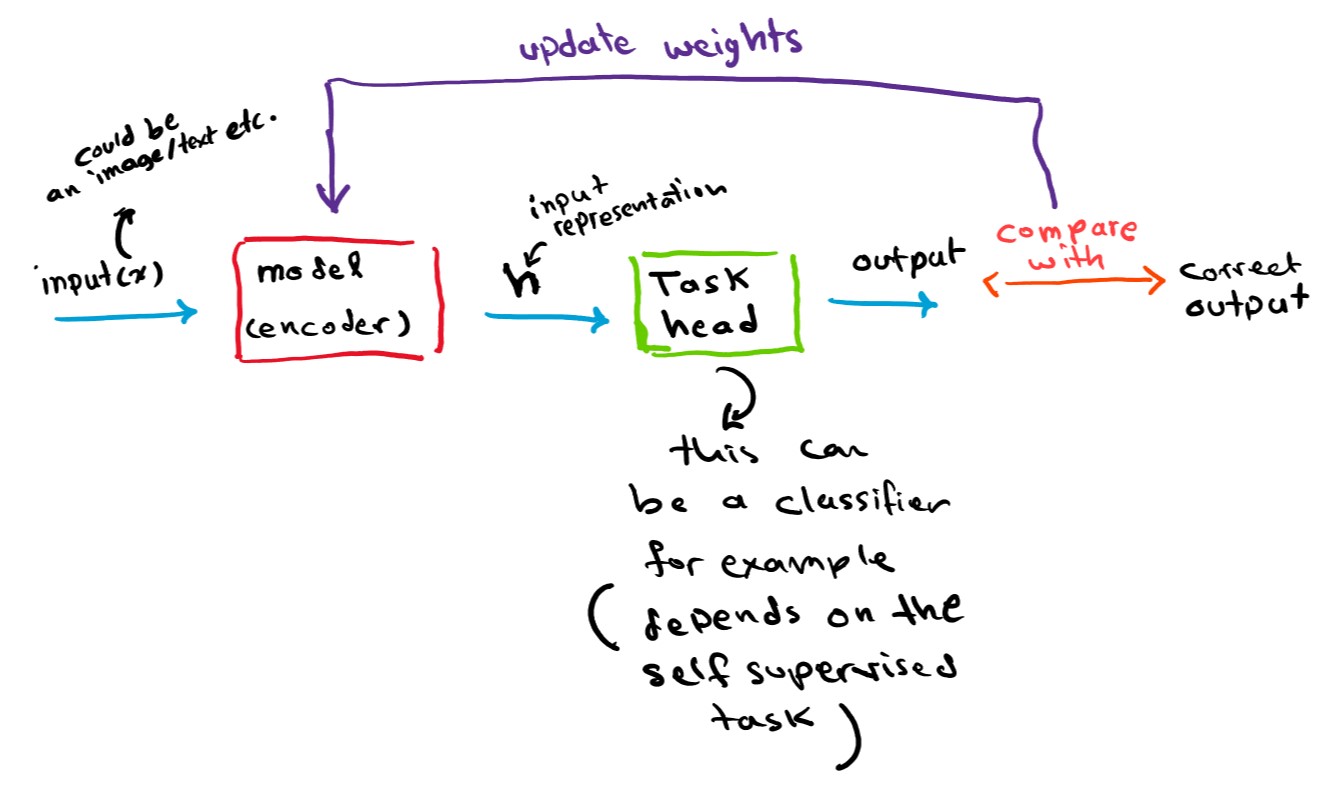 update weights
could be
an image/text etc.
input(x)
model
(encoder)
input
representation
h
Task
head
output
compare
with
correct
output
this can
be a classifier
for example
(depends on the
self supervised
task)